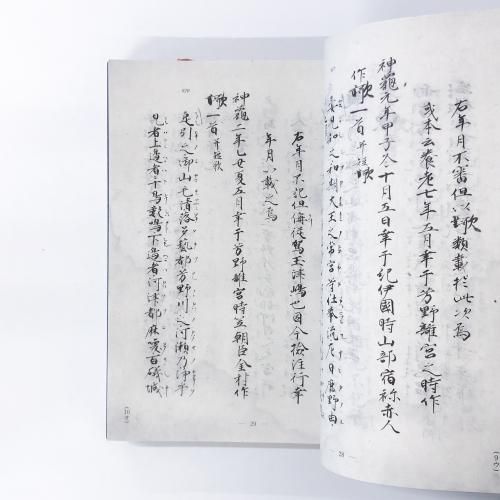 右年月不審但以歌類載於此次焉
或本云養老七年五月幸于芳野離宮之時作
神龜元年甲子冬十月五日幸于紀伊國時山部宿祢赤人
作歌一首并短歌
安見知之和期大王之常宮等仕奉流左日鹿野由
— 28 —
(9ウ)
右年月不記但偁従駕玉津嶋也因今檢注行幸
年月以載之焉
神龜二年乙丑夏五月幸于芳野離宮時笠朝臣金村作
歌一首并短歌
920
足引之御山毛清落多藝都芳野川之河瀬乃浄乎
見者上邊者千鳥數鳴下邊者河津都麻喚百礒城
— 29 —
(10オ)